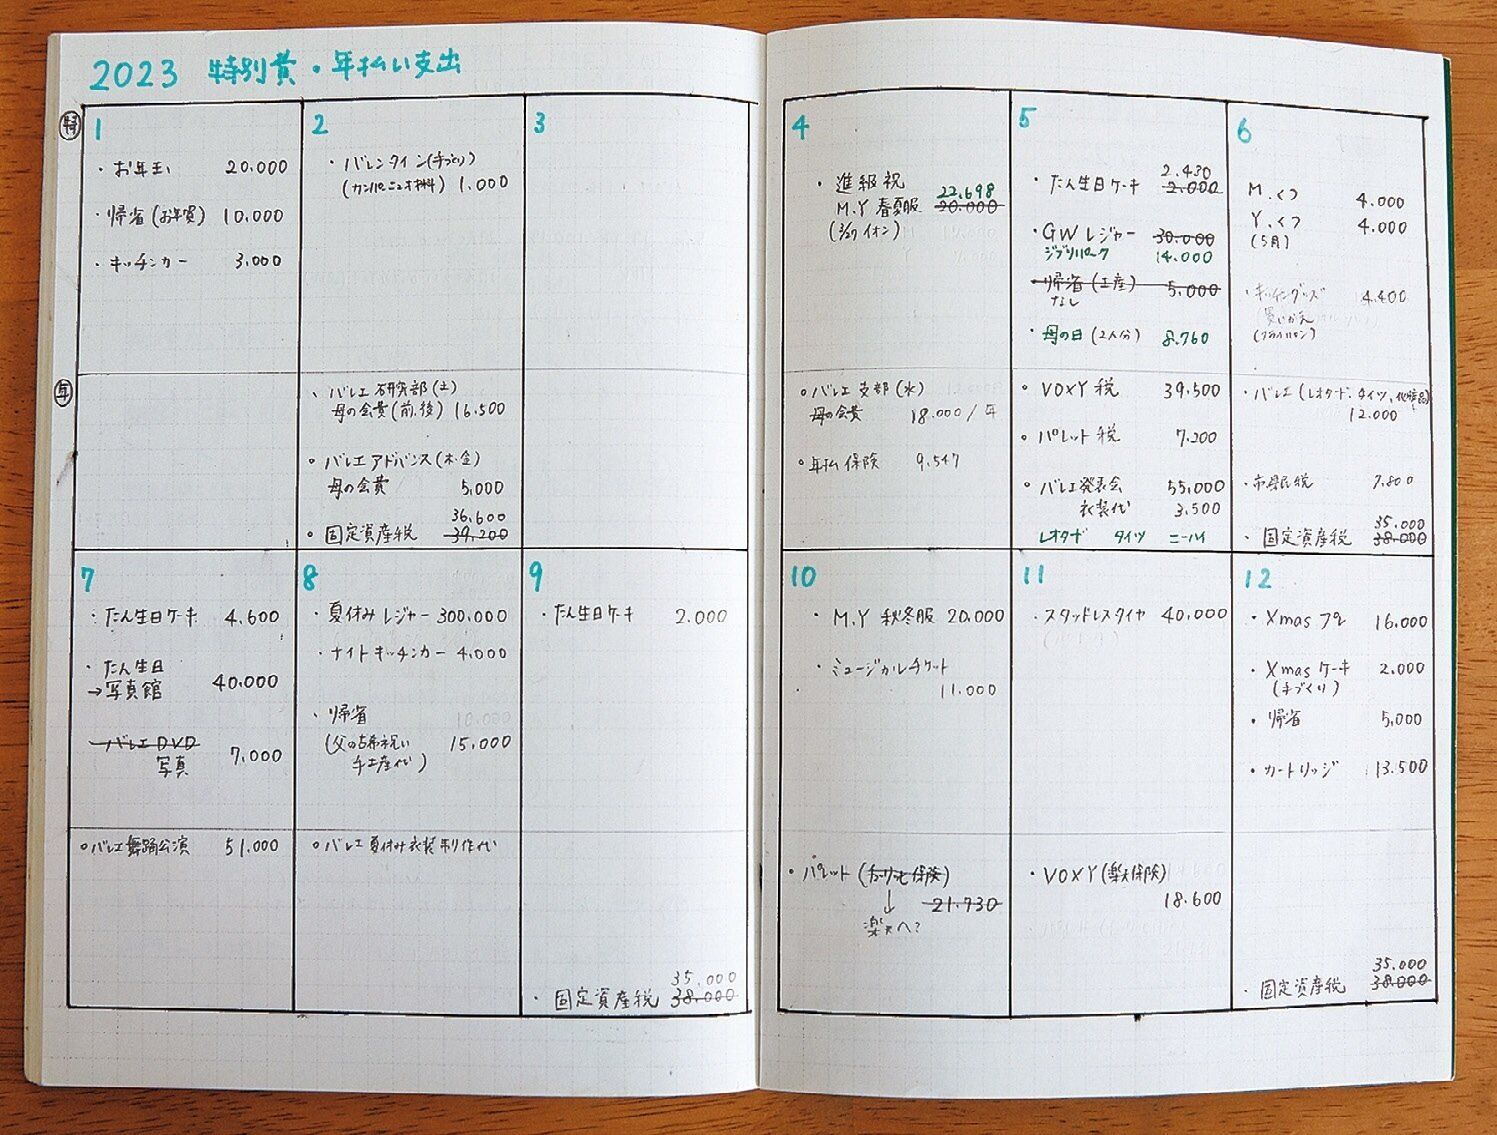 2023 特別費・年払い支出
特
1
・お年玉 20.000
・帰省(お年賀) 10.000
・キッチンカー 3.000
2
・バレンタイン(手づくり)
1.000
3
年
・バレエ 研究部(土)
母の会費(前.後) 16.500
・バレエアドバンス(木.金)
母の会費 5,000
36,600
・固定資産税 39,200
4
・進級祝
22.698
M.Y 春夏服 20.000
(3/27 イオン)
5
2.430
・たん生日ケーキ 2.000
・GW レジャー 30.000
ジブリパーク 14.000
・帰省(土産) 5.000
なし
・母の日(2人分) 8.760
6
M.くつ 4.000
Y.くつ 4.000
(5月)
・キッチングッズ 4.400
買いかえ
(フライパン)
・バレエ支部(水)
母の会費 18.000/年
・年払保険 9.547
・VOXY税 39,500
・パレット税 7.200
・バレエ発表会 55,000
衣装代 3.500
レオタード タイツ ニーハイ
・バレエ(レオタード.タイツ.化粧品)
12.000
・市県民税 7,800
35.000
・固定資産税 38.000
7
・たん生日ケーキ 4,600
・たん生日
→写真館 40.000
バレエDVD
写真 7,000
8
・夏休みレジャー 300.000
・ナイトキッチンカー 4.000
・帰省 10.000
(父の古希祝い 15.000
手土産代)
9
・たん生日ケーキ 2.000
・バレエ舞踊公演 51.000
・バレエ夏休み衣装制作代
35.000
・固定資産税 38.000
10
・M.Y 秋冬服 20.000
・ミュージカルチケット
11.000
11
・スタッドレスタイヤ 40.000
12
・Xmasプレ 16.000
・Xmasケーキ 2.000
(手づくり)
・帰省 5,000
・カートリッジ 13.500
・パレット(チューリッヒ保険)
↓ 21.730
楽天へ?
・VOXY(楽天保険)
18.600
35.000
・固定資産税 38.000